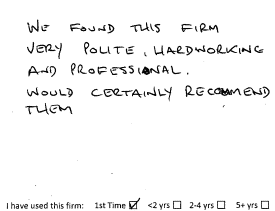 WE FOUND THIS FIRM
VERY POLITE, HARDWORKING
AND PROFESSIONAL.
WOULD CERTAINLY RECOMMEND
THEM
I have used this firm: 1st Time ☑ <2 yrs ☐ 2-4 yrs ☐ 5+ yrs ☐